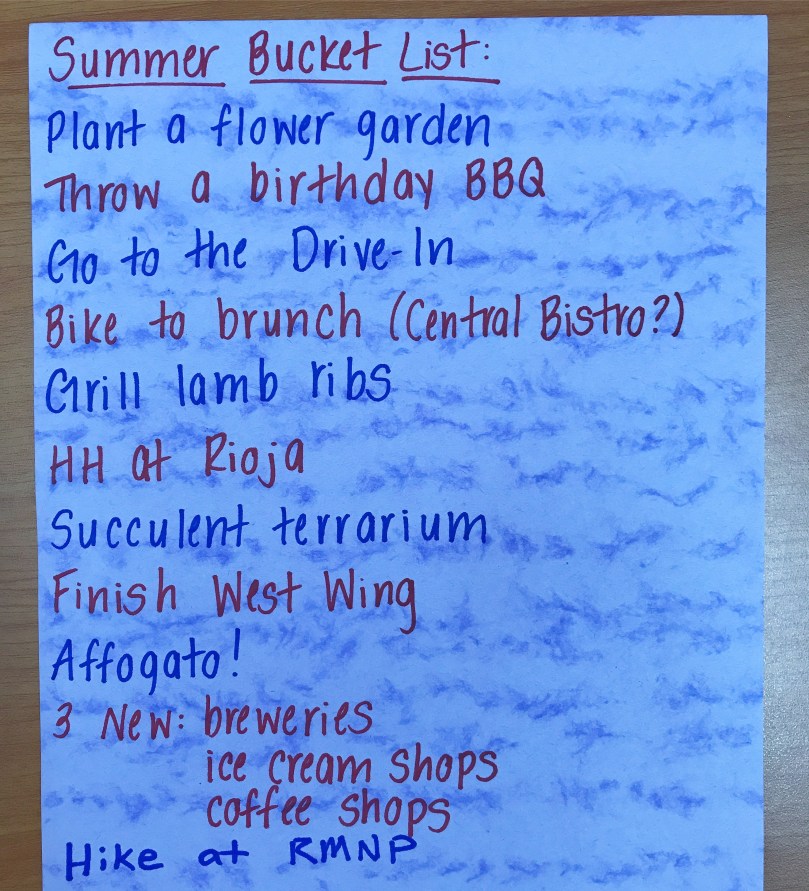 Summer Bucket List:
Plant a flower garden
Throw a birthday BBQ
Go to the Drive-In
Bike to brunch (Central Bistro?)
Grill lamb ribs
HH at Rioja
Succulent terrarium
Finish West Wing
Affogato!
3 New: breweries
ice cream shops
coffee shops
Hike at RMNP